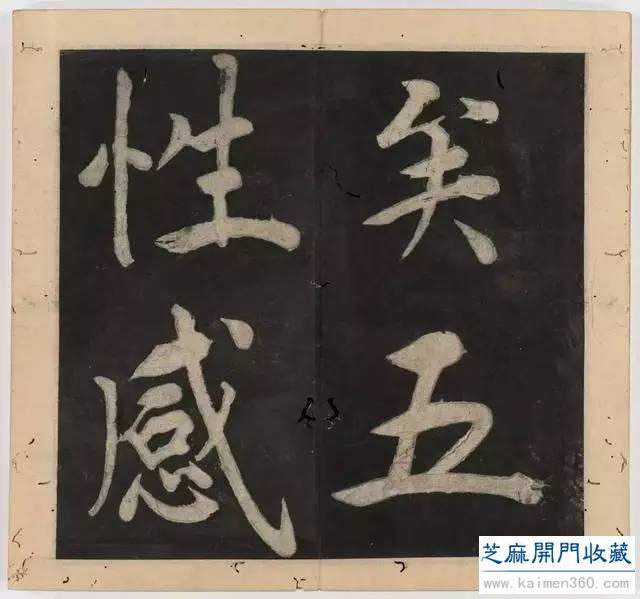 矣五
性感
芝麻開門收藏
www.kaimen360.com